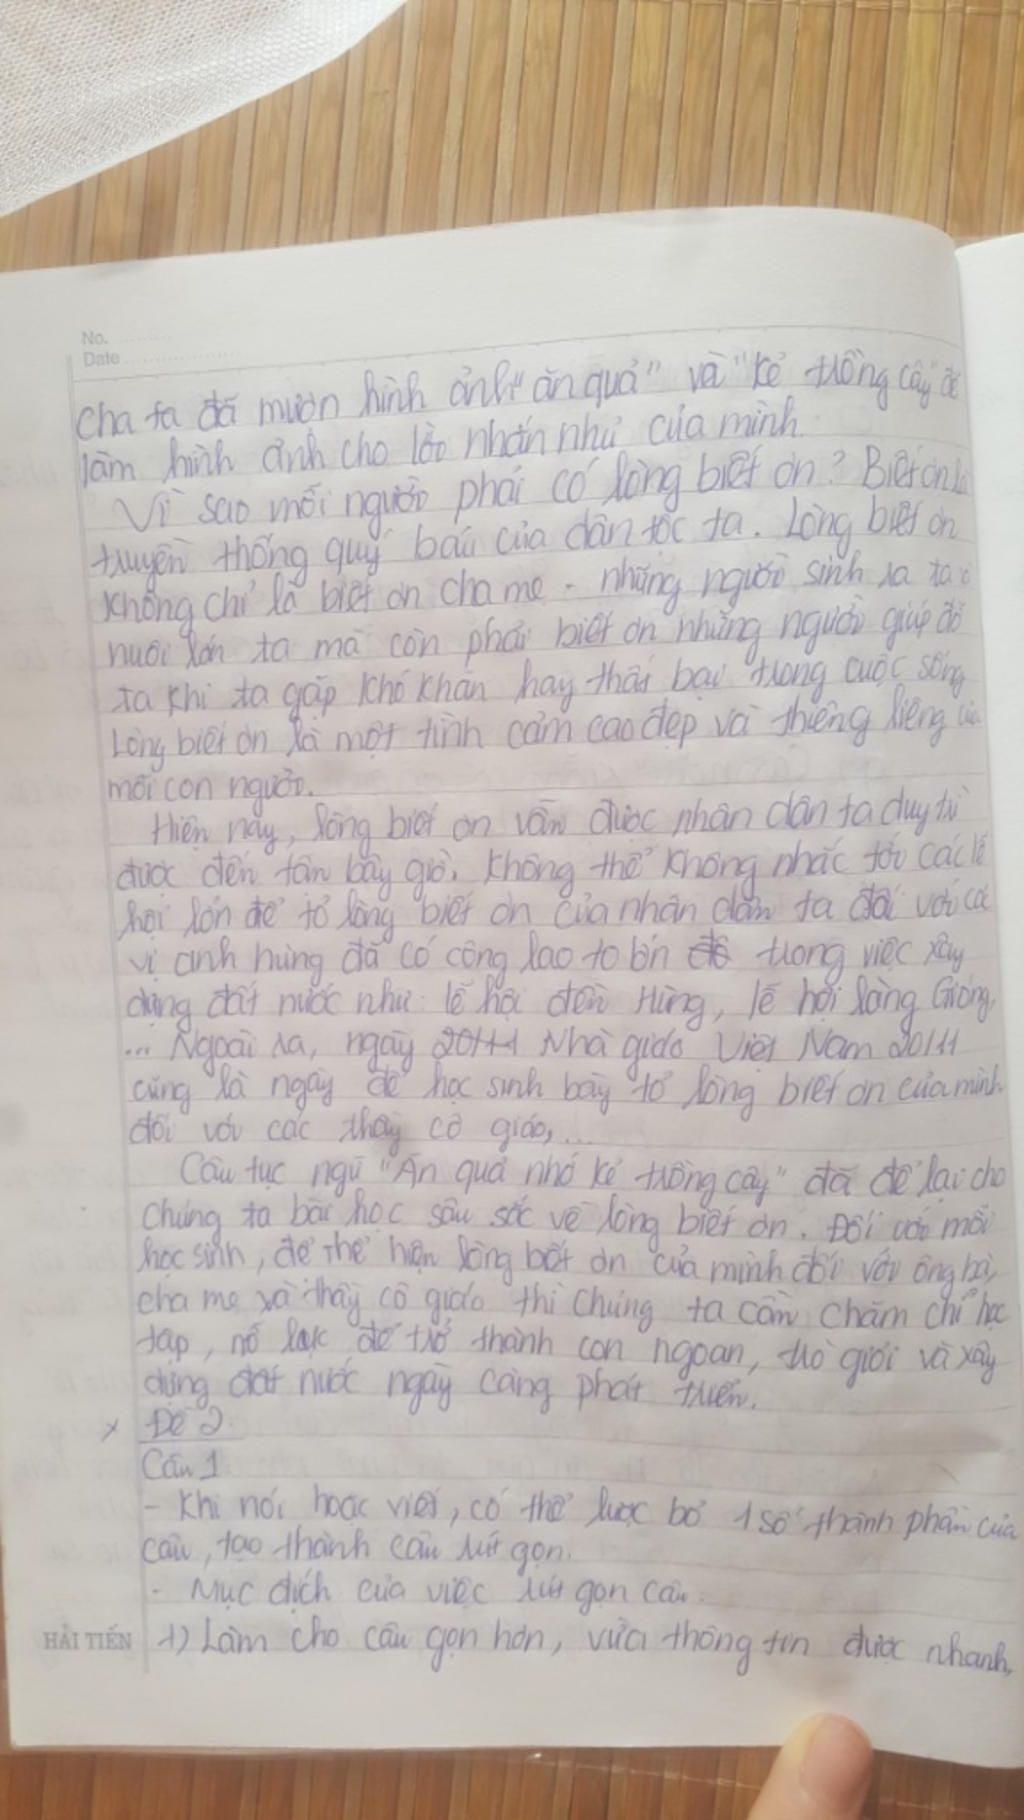 No.
Date
cha ta đã mượn hình ảnh "ăn quả" và "kẻ trồng cây" để
làm hình ảnh cho lời nhắn nhủ của mình.
Vì sao mỗi người phải có lòng biết ơn? Biết ơn là
truyền thống quý báu của dân tộc ta. Lòng biết ơn
không chỉ là biết ơn cha mẹ - những người sinh ra ta
nuôi lớn ta mà còn phải biết ơn những người giúp đỡ
ta khi ta gặp khó khăn hay thất bại trong cuộc sống
Lòng biết ơn là một tình cảm cao đẹp và thiêng liêng của
mỗi con người.
Hiện nay, lòng biết ơn vẫn được nhân dân ta duy trì
được đến tận bây giờ. Không thể không nhắc tới các lễ
hội lớn để tỏ lòng biết ơn của nhân dân ta đối với cá
vị anh hùng đã có công lao to lớn trong việc xây
dựng đất nước như: lễ hội đền Hùng, lễ hội làng Gióng,
... Ngoài ra, ngày Nhà giáo Việt Nam 20/11
cũng là ngày để học sinh bày tỏ lòng biết ơn của mình
đối với các thầy cô giáo,...
Câu tục ngữ "Ăn quả nhớ kẻ trồng cây" đã để lại cho
chúng ta bài học sâu sắc về lòng biết ơn. Đối với mỗi
học sinh, để thể hiện lòng biết ơn của mình đối với ông bà,
cha mẹ và thầy cô giáo thì chúng ta cần chăm chỉ học
tập, nỗ lực để trở thành con ngoan, trò giỏi và xây
dựng đất nước ngày càng phát triển.
x Đề 2
Câu 1
- Khi nói hoặc viết, có thể lược bỏ 1 số thành phần của
câu, tạo thành câu rút gọn.
- Mục đích của việc rút gọn câu:
+) Làm cho câu gọn hơn, vừa thông tin được nhanh,
HẢI TIẾN